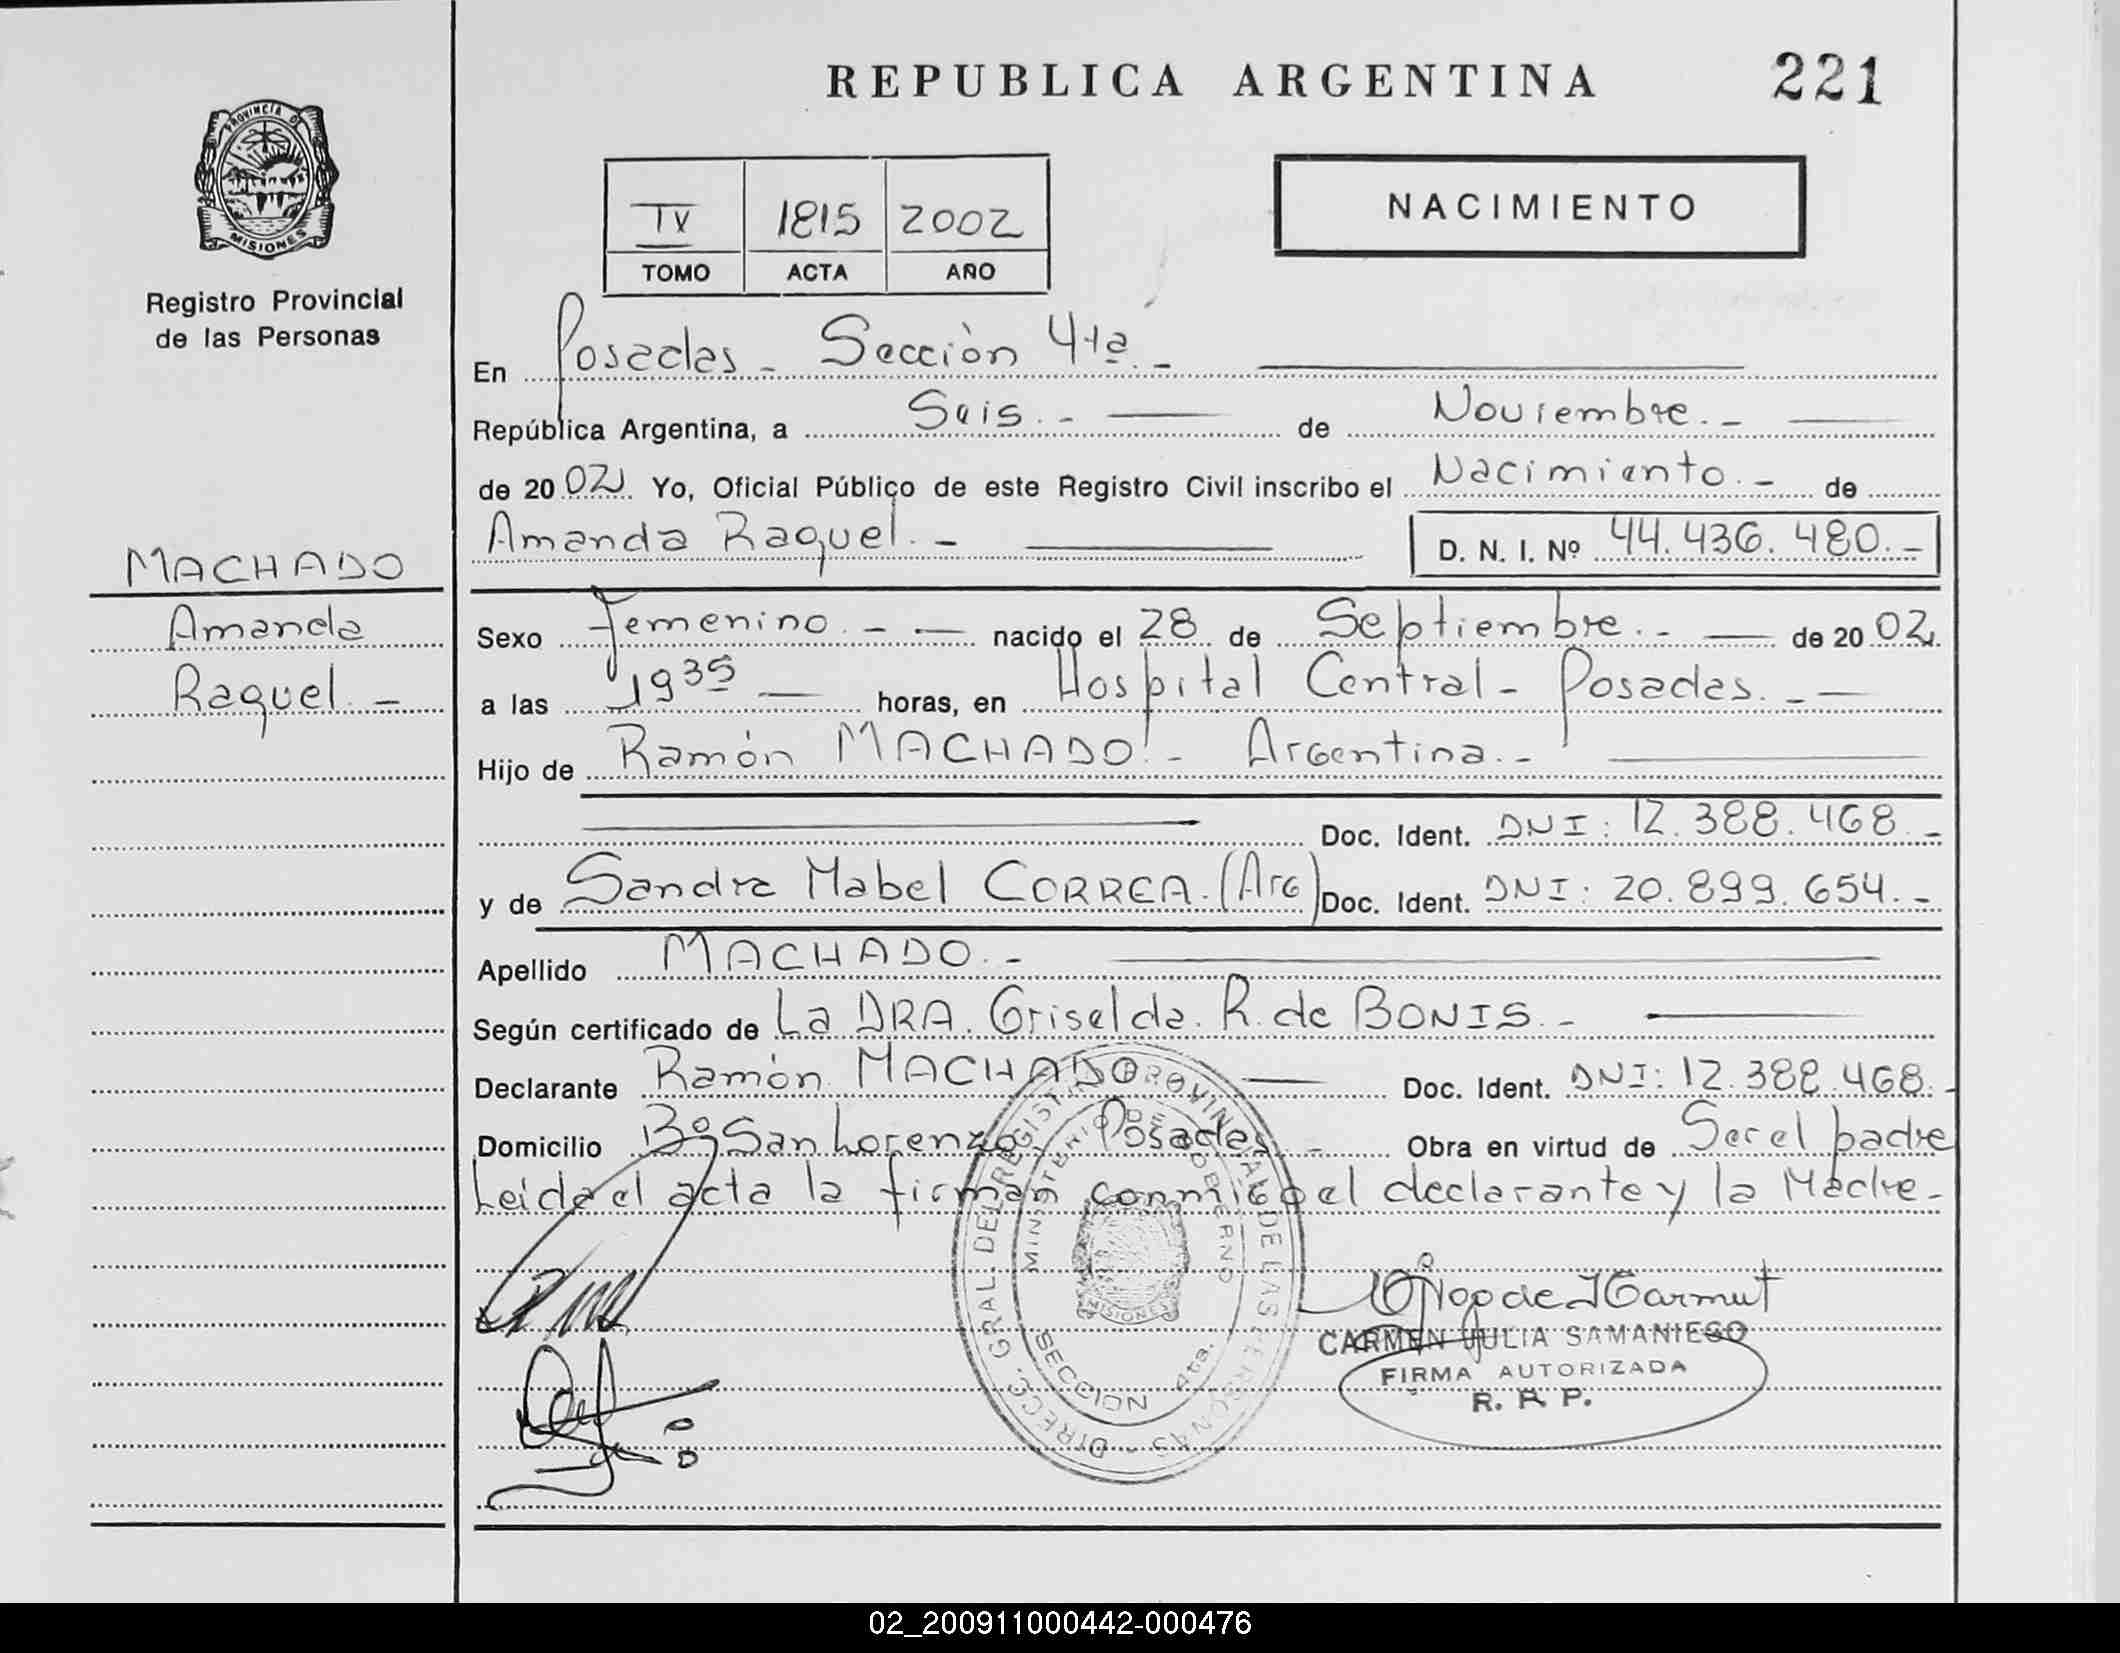 REPUBLICA ARGENTINA
221
PROVINCIA DE
MISIONES
Registro Provincial
de las Personas
IV 1815 2002
TOMO ACTA AÑO
NACIMIENTO
En Posadas - Sección 4ta. -
República Argentina, a Seis. - de Noviembre. -
de 20 02 Yo, Oficial Público de este Registro Civil inscribo el Nacimiento. - de
Amanda Raquel. - D. N. I. Nº 44.436.480. -
MACHADO
Amanda
Raquel. -
Sexo Femenino. - - nacido el 28 de Septiembre. - de 20 02
a las 19 35 horas, en Hospital Central - Posadas. -
Hijo de Ramón MACHADO. - Argentina. -
Doc. Ident. DNI: 12.388.468. -
y de Sandra Mabel CORREA. (Arg) Doc. Ident. DNI: 20.899.654. -
Apellido MACHADO. -
Según certificado de La DRA. Griselda. R. de BONIS. -
Declarante Ramón MACHADO Doc. Ident. DNI: 12.388.468. -
Domicilio Bº San Lorenzo Posadas - Obra en virtud de Ser el padre
Leida el acta la firman conmigo el declarante y la Madre. -
DIRECC. GRAL. DEL REGISTRO PROVINCIAL DE LAS PERSONAS -
MINISTERIO DE GOBIERNO
MISIONES
SECCION 4ta.
CARMEN JULIA SAMANIEGO
FIRMA AUTORIZADA
R. R. P.
02_200911000442-000476